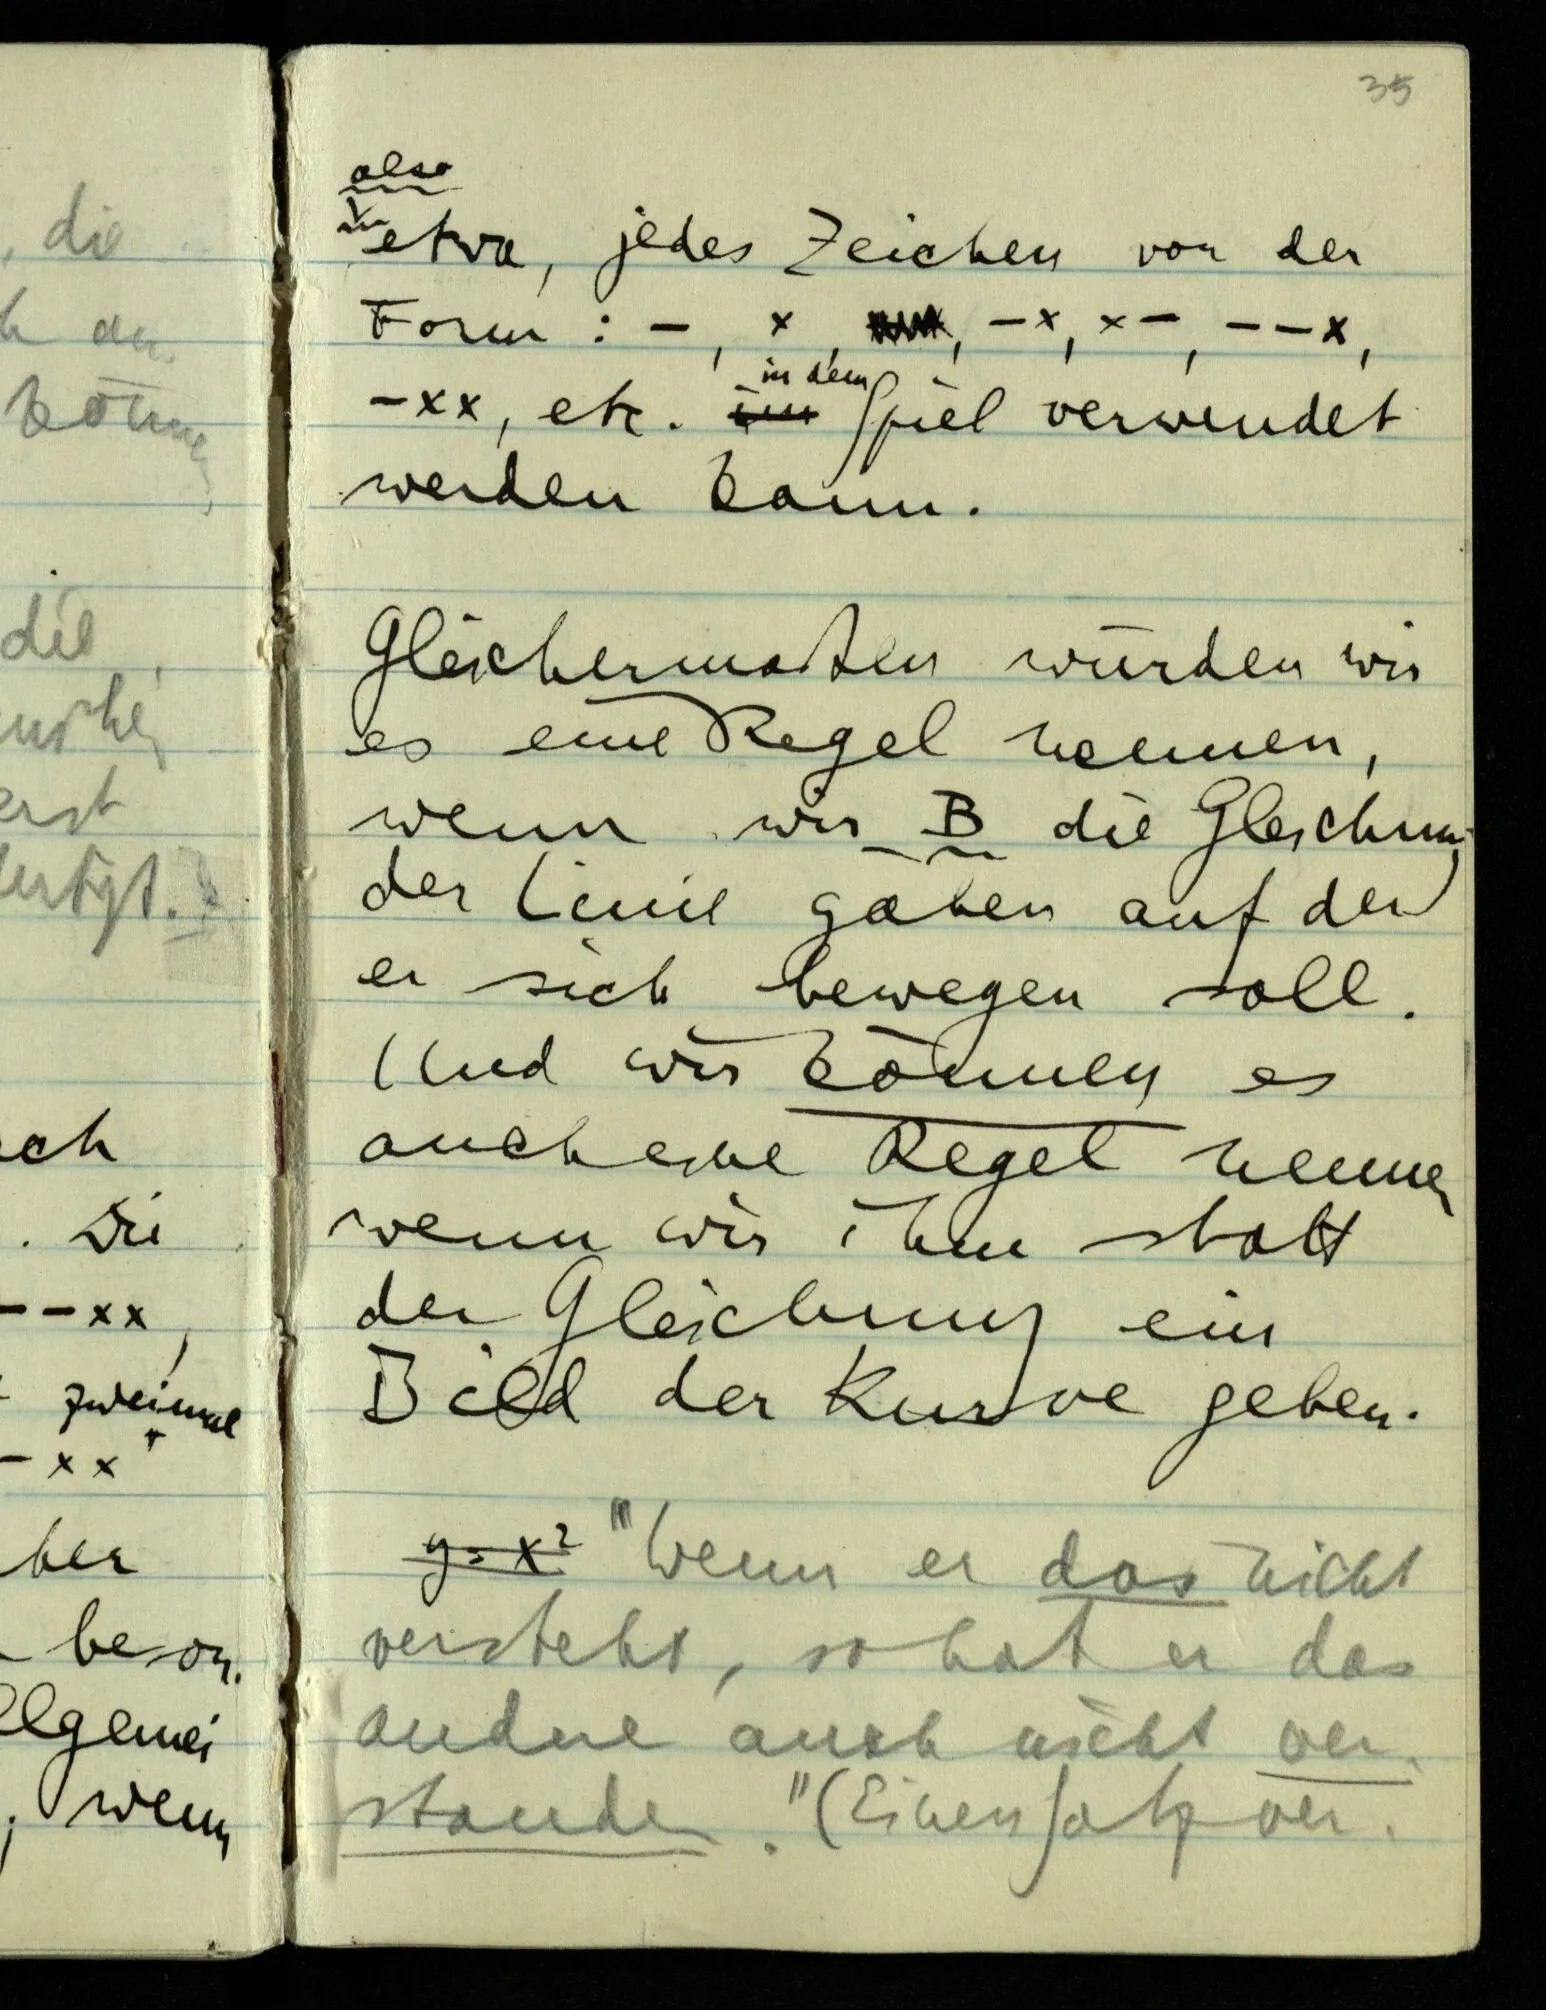 35
also
etwa, jedes Zeichen von der
Form : –, x, –x, x–, – –x,
in dem
–xx, etc. im Spiel verwendet
werden kann.
Gleichermaßen würden wir
es eine Regel nennen,
wenn wir B die Gleichung
der Linie gäben auf der
er sich bewegen soll.
Und wir können es
auch eine Regel nennen
wenn wir ihm statt
der Gleichung ein
Bild der Kurve geben.
y = x² "Wenn er das nicht
versteht, so hat er das
andere auch nicht ver-
standen." (Einen Satz ver-
, die
können,
die
erst
. Die
– –xx,
zweimal
–xx
ber
beson-
allgemei
, wenn